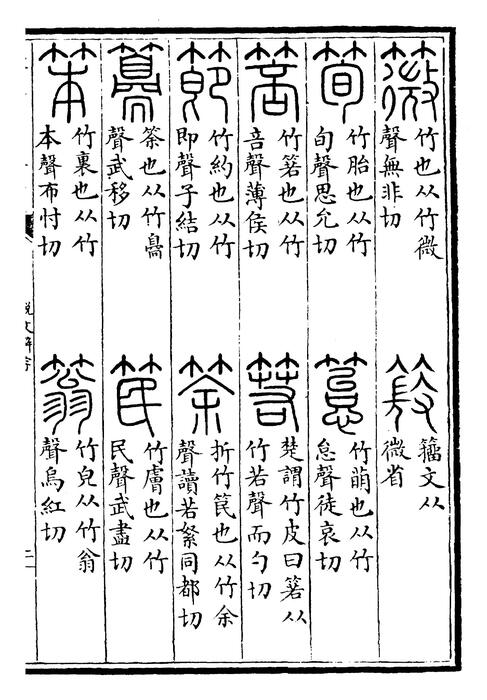 䉠
竹也从竹微
聲無非切
籒文从
微省
筍
竹胎也从竹
旬聲思允切
䈚
竹萌也从竹
怠聲徒哀切
箁
竹箬也从竹
咅聲薄侯切
箬
楚謂竹皮曰箬从
竹若聲而勺切
節
竹約也从竹
即聲子結切
筡
折竹笢也从竹余
聲讀若絮同都切
筡也从竹𦤝
聲武移切
笢
竹膚也从竹
民聲武盡切
笨
竹裏也从竹
本聲布忖切
竹皃从竹翁
聲烏紅切
說文解字
二